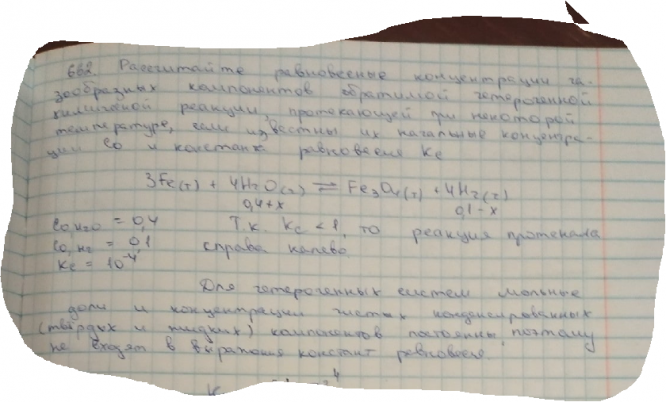 662. Рассчитайте равновесные концентрации га-
зообразных компонентов обратимой гетерогенной
химической реакции, протекающей при некоторой
температуре, если известны их начальные концентра-
ции Co и констант равновесия Kc
3Fe(т) + 4H2O(г) ⇌ Fe3O4(т) + 4H2(г)
0,4+x 0,1-x
Co H2O = 0,4 Т.к. Kc < 1, то реакция протекала
Co, H2 = 0,1 справа налево
Kc = 10^-4
Для гетерогенных систем мольные
доли и концентрации чистых конденсированных
(твёрдых и жидких) компонентов постоянны, поэтому
не входят в выражения констант равновесия.